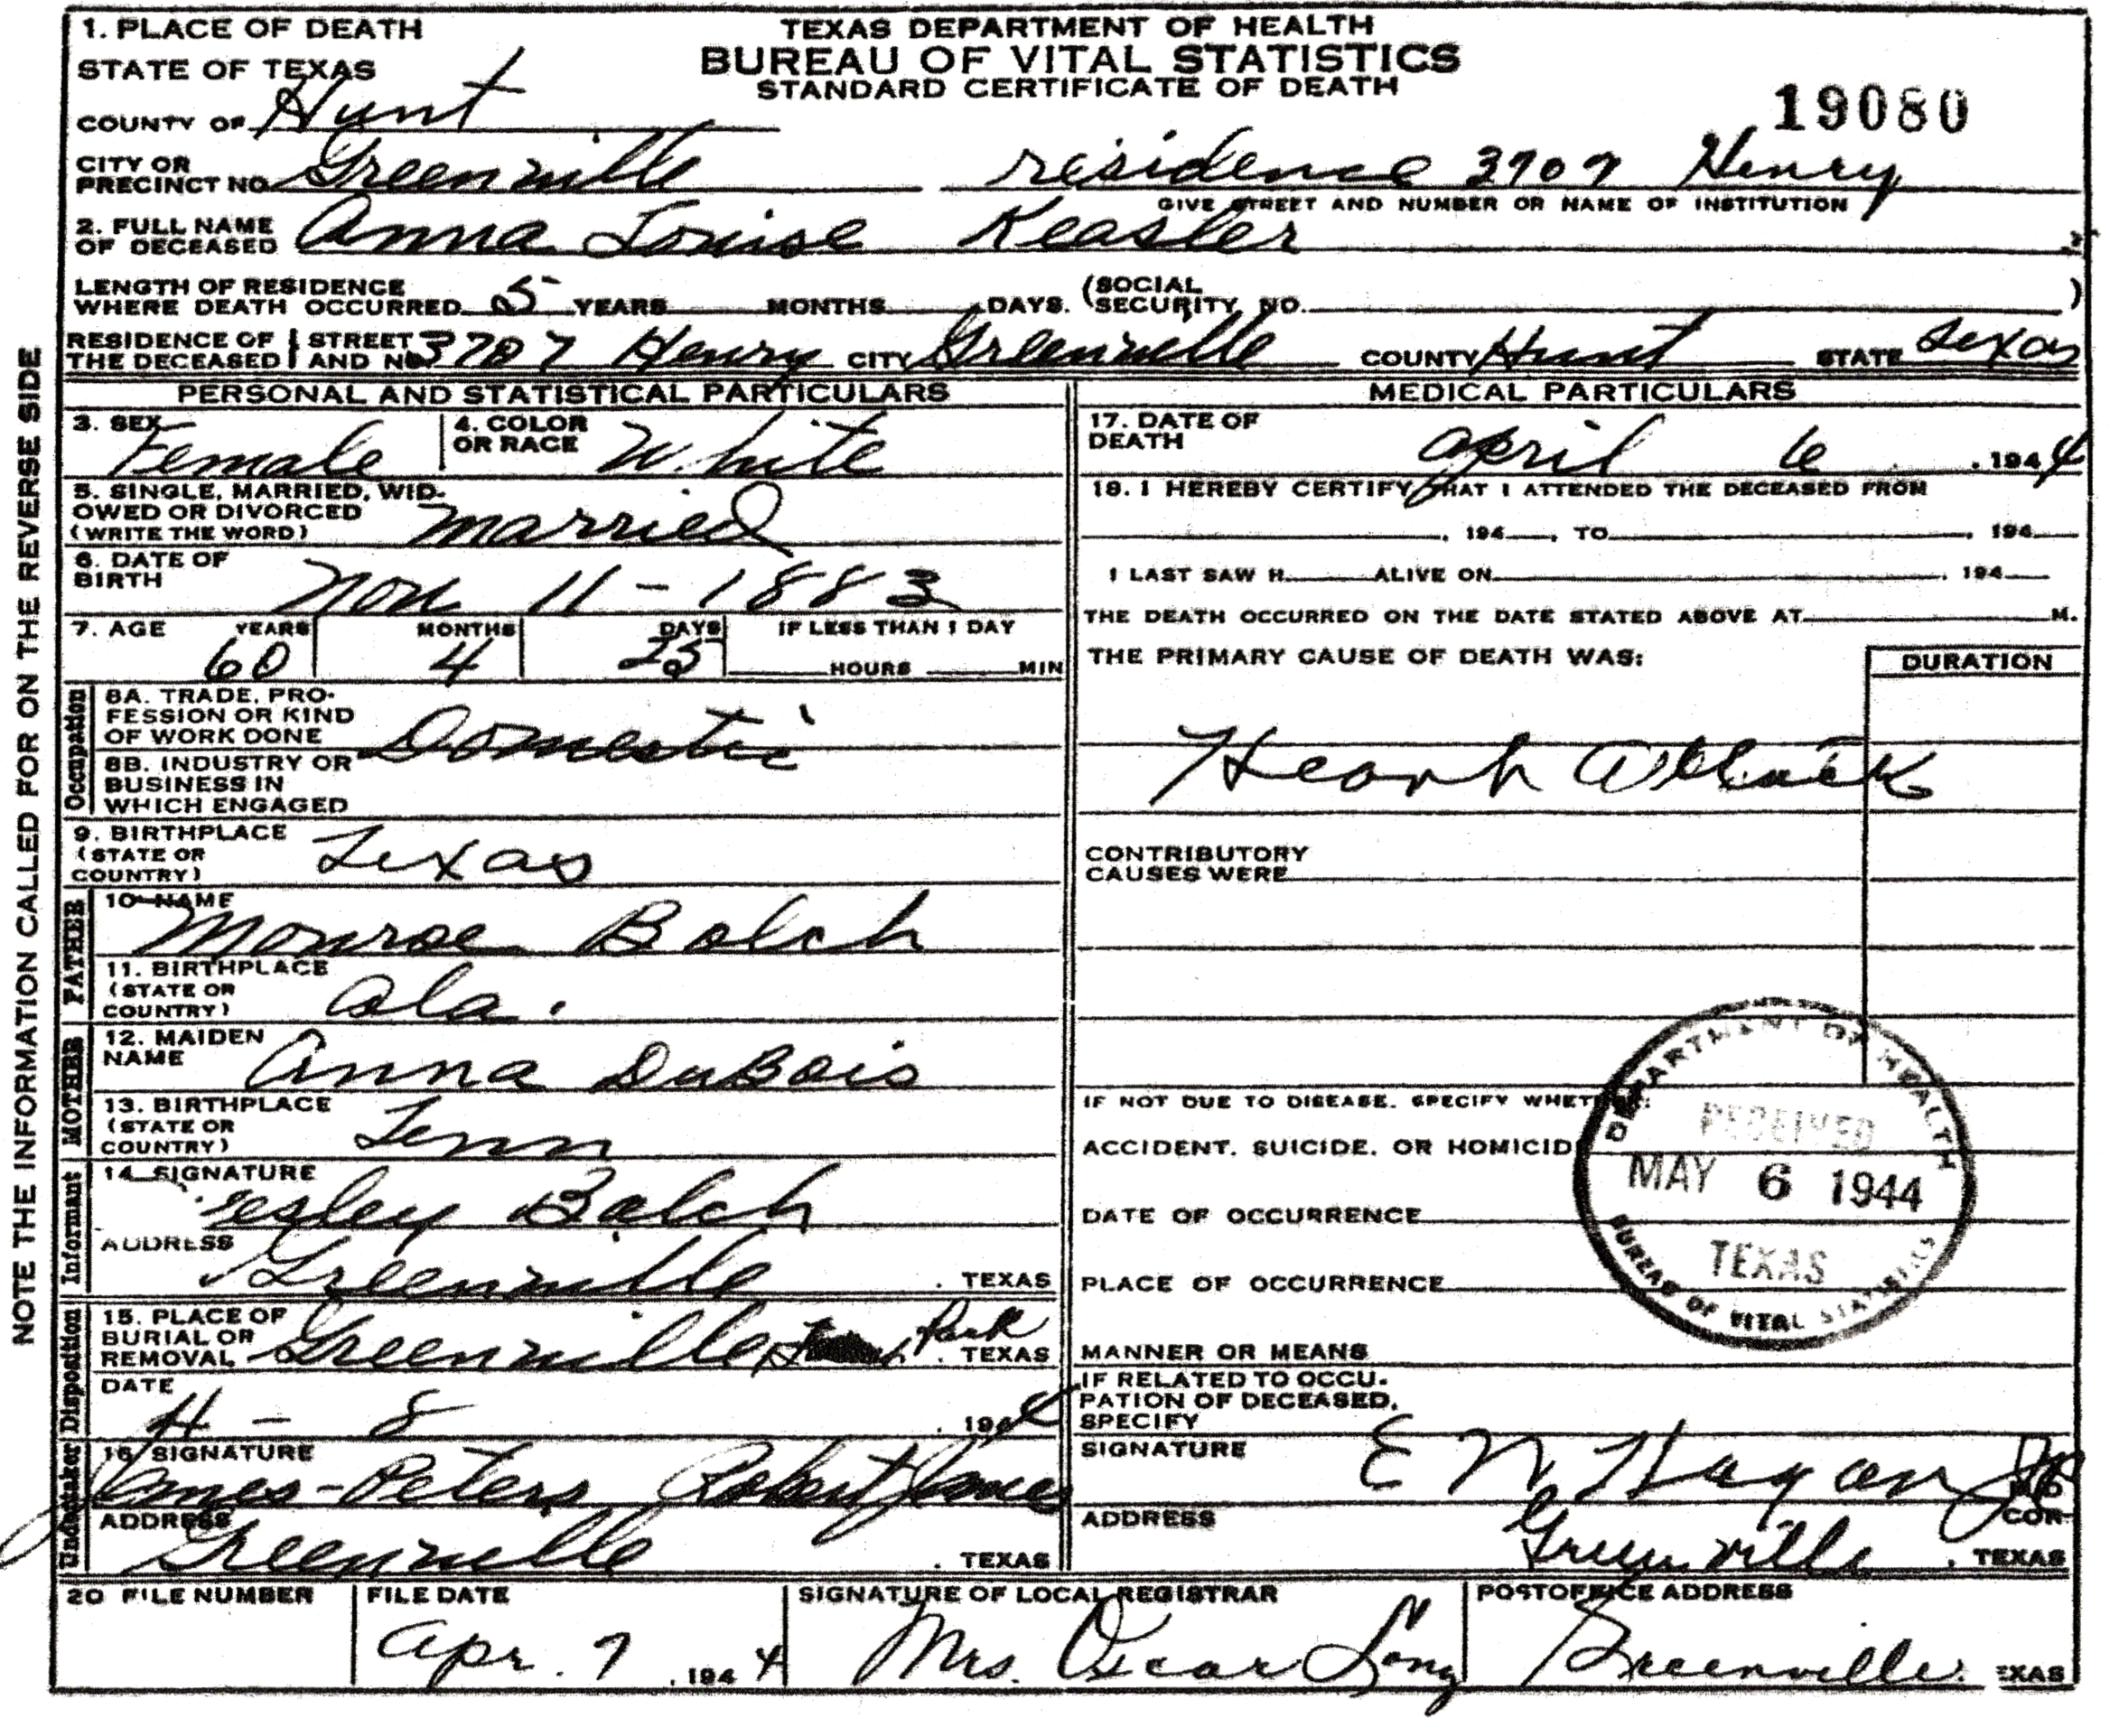 TEXAS DEPARTMENT OF HEALTH
BUREAU OF VITAL STATISTICS
STANDARD CERTIFICATE OF DEATH
19080
1. PLACE OF DEATH
STATE OF TEXAS
COUNTY OF Hunt
CITY OR PRECINCT NO. Greenville residence 3707 Henry
GIVE STREET AND NUMBER OR NAME OF INSTITUTION
2. FULL NAME OF DECEASED Anna Louise Keasler
LENGTH OF RESIDENCE WHERE DEATH OCCURRED 5 YEARS MONTHS DAYS. (SOCIAL SECURITY NO. )
RESIDENCE OF THE DECEASED STREET AND NO. 3707 Henry CITY Greenville COUNTY Hunt STATE Texas
PERSONAL AND STATISTICAL PARTICULARS
3. SEX Female 4. COLOR OR RACE White
5. SINGLE, MARRIED, WIDOWED OR DIVORCED (WRITE THE WORD) married
6. DATE OF BIRTH Nov 11 - 1883
7. AGE YEARS 60 MONTHS 4 DAYS 25 IF LESS THAN 1 DAY HOURS MIN
Occupation
8A. TRADE, PROFESSION OR KIND OF WORK DONE Domestic
8B. INDUSTRY OR BUSINESS IN WHICH ENGAGED
9. BIRTHPLACE (STATE OR COUNTRY) Texas
FATHER
10 NAME Monroe Balch
11. BIRTHPLACE (STATE OR COUNTRY) Ala.
MOTHER
12. MAIDEN NAME Anna DuBois
13. BIRTHPLACE (STATE OR COUNTRY) Tenn
Informant
14 SIGNATURE esley Balch
ADDRESS Greenville, TEXAS
Disposition
15. PLACE OF BURIAL OR REMOVAL Greenville Park, TEXAS
DATE 4 - 8, 1944
Undertaker
16 SIGNATURE James-Peters Robert James
ADDRESS Greenville, TEXAS
MEDICAL PARTICULARS
17. DATE OF DEATH April 6, 1944
18. I HEREBY CERTIFY THAT I ATTENDED THE DECEASED FROM
, 194 , TO , 194
I LAST SAW H ALIVE ON , 194
THE DEATH OCCURRED ON THE DATE STATED ABOVE AT M.
THE PRIMARY CAUSE OF DEATH WAS: DURATION
Heart Attack
CONTRIBUTORY CAUSES WERE
IF NOT DUE TO DISEASE, SPECIFY WHETHER:
ACCIDENT, SUICIDE, OR HOMICID
DATE OF OCCURRENCE
PLACE OF OCCURRENCE
MANNER OR MEANS
IF RELATED TO OCCUPATION OF DECEASED, SPECIFY
DEPARTMENT OF HEALTH
RECEIVED
MAY 6 1944
TEXAS
BUREAU OF VITAL STATISTICS
SIGNATURE E N Hagan
COR
ADDRESS Greenville, TEXAS
20 FILE NUMBER
FILE DATE Apr. 7, 1944
SIGNATURE OF LOCAL REGISTRAR Mrs. Oscar Long
POSTOFFICE ADDRESS Greenville EXAS
NOTE THE INFORMATION CALLED FOR ON THE REVERSE SIDE